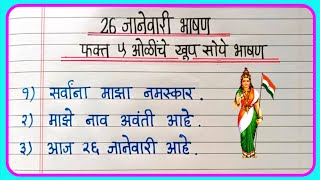 26 जानेवारी भाषण
फक्त ५ ओळींचे खूप सोपे भाषण
१) सर्वांना माझा नमस्कार .
२) माझे नाव अवंती आहे .
३) आज २६ जानेवारी आहे .